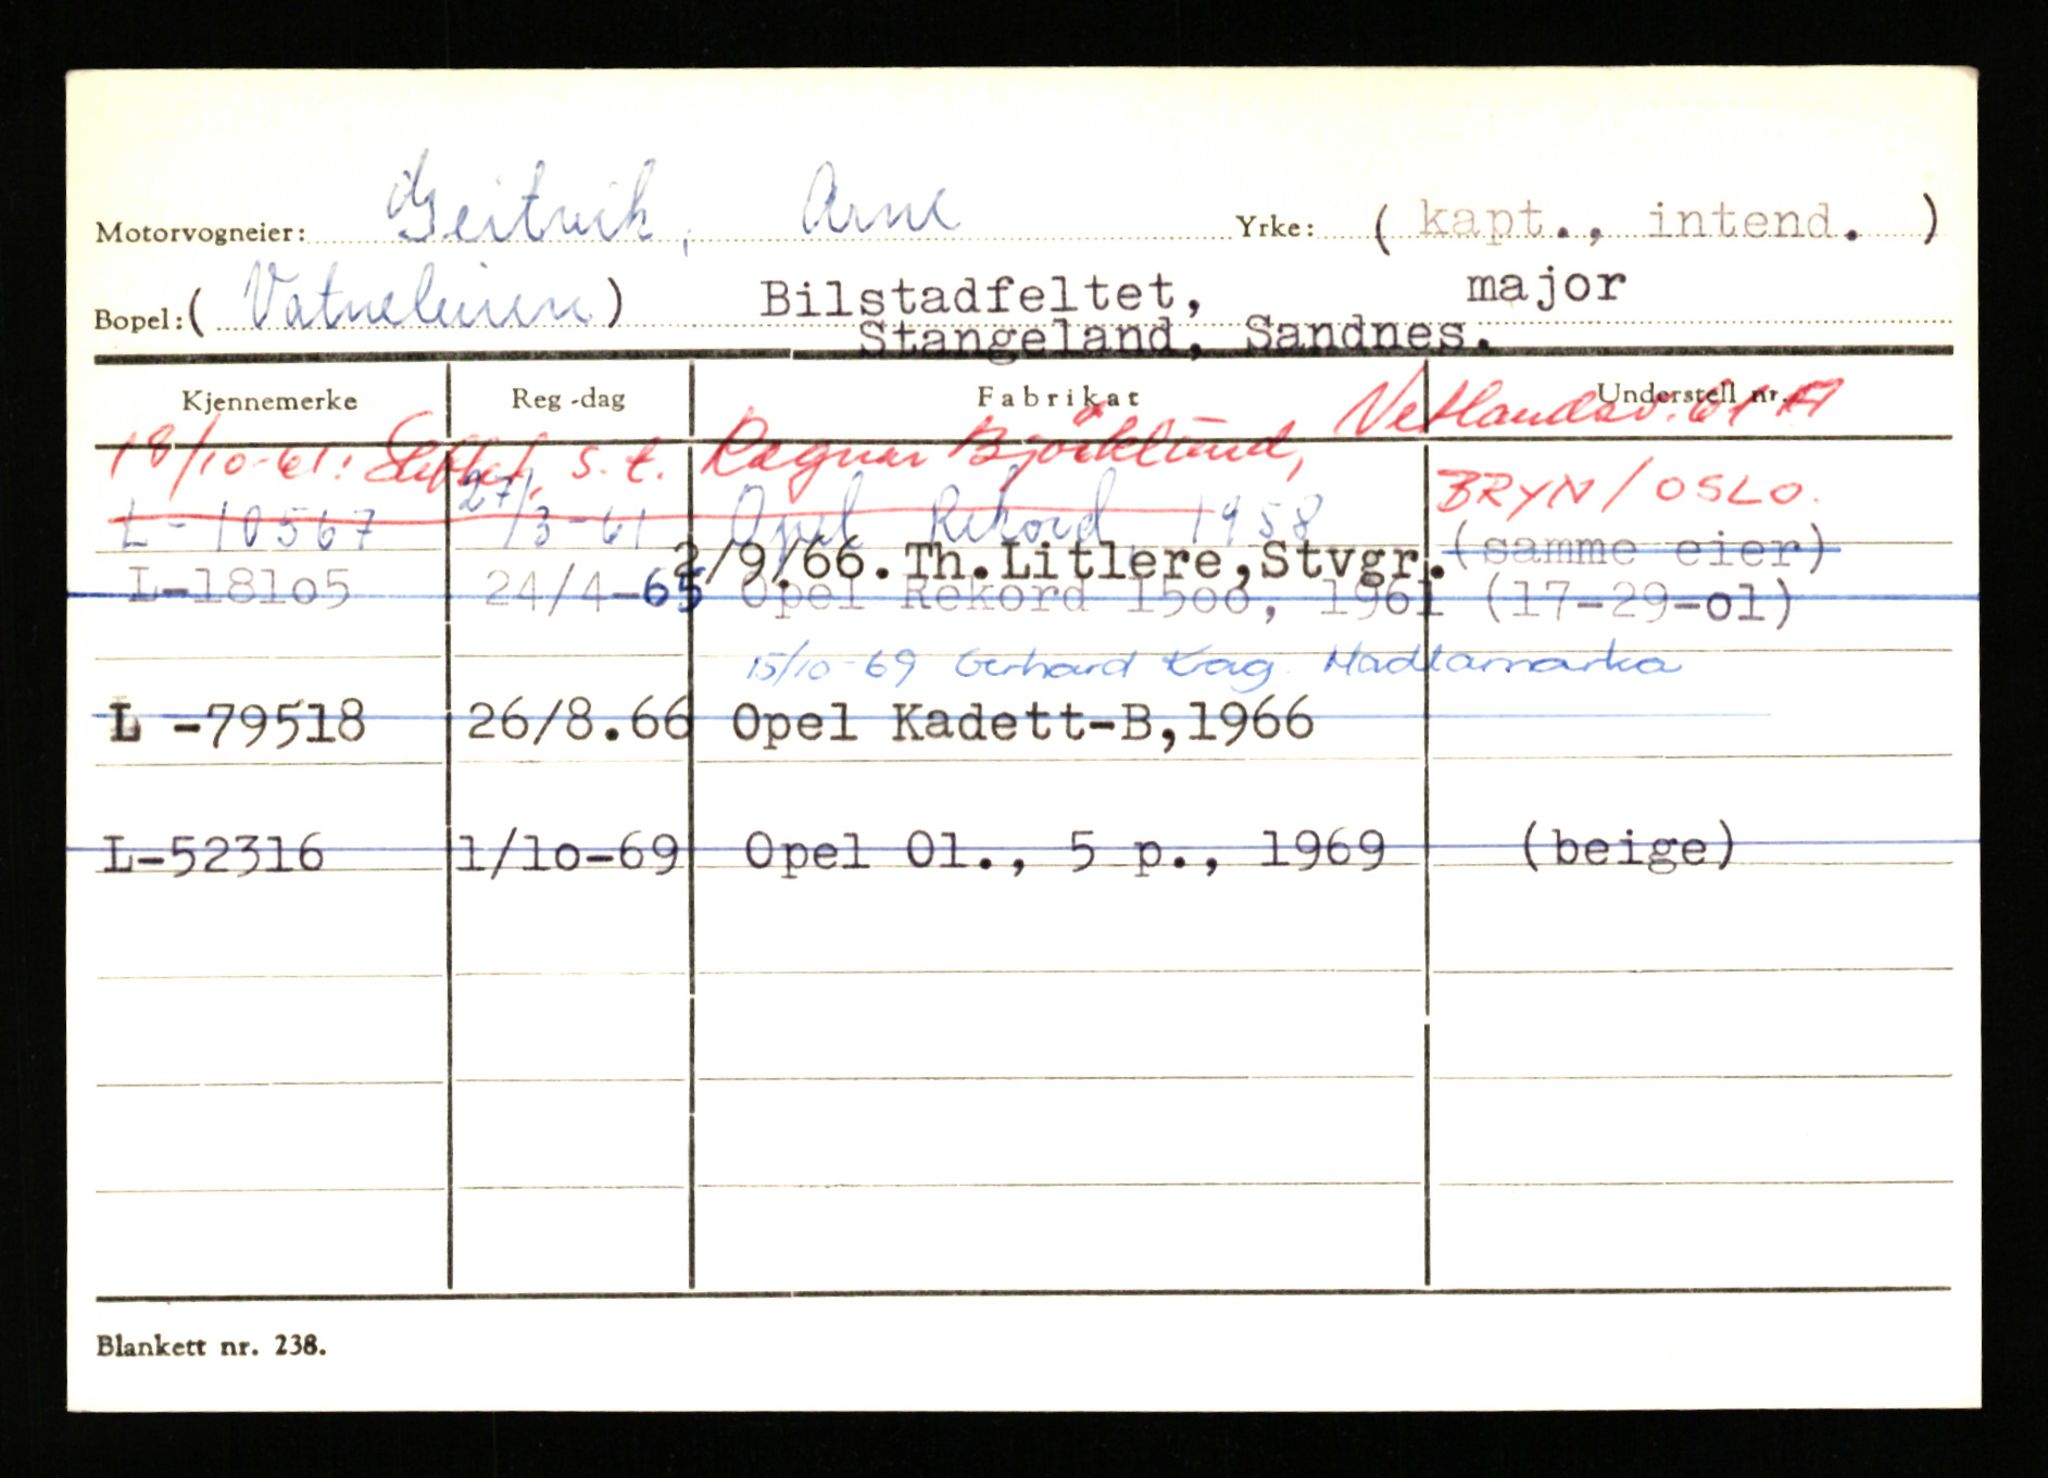 Motorvogneier: Geitvik, Arne Yrke: ( kapt., intend. )
Bopel: ( Vatneleiren ) Bilstadfeltet, major
Stangeland, Sandnes.
Kjennemerke Reg-dag Fabrikat Understell nr.
Vetlandsv. 61 A
18/10-61: s.t. Ragnar Björklund,
BRYN / OSLO.
L-10567 27/3-61 Opel Rekord 1958
2/9/66. Th. Litlere, Stvgr. (samme eier)
L-18105 24/4-65 Opel Rekord 1500, 1961 (17-29-01)
15/10-69 Gerhard Krag. Madlamarka
L -79518 26/8.66 Opel Kadett-B,1966
L-52316 1/10-69 Opel Ol., 5 p., 1969 (beige)
Blankett nr. 238.